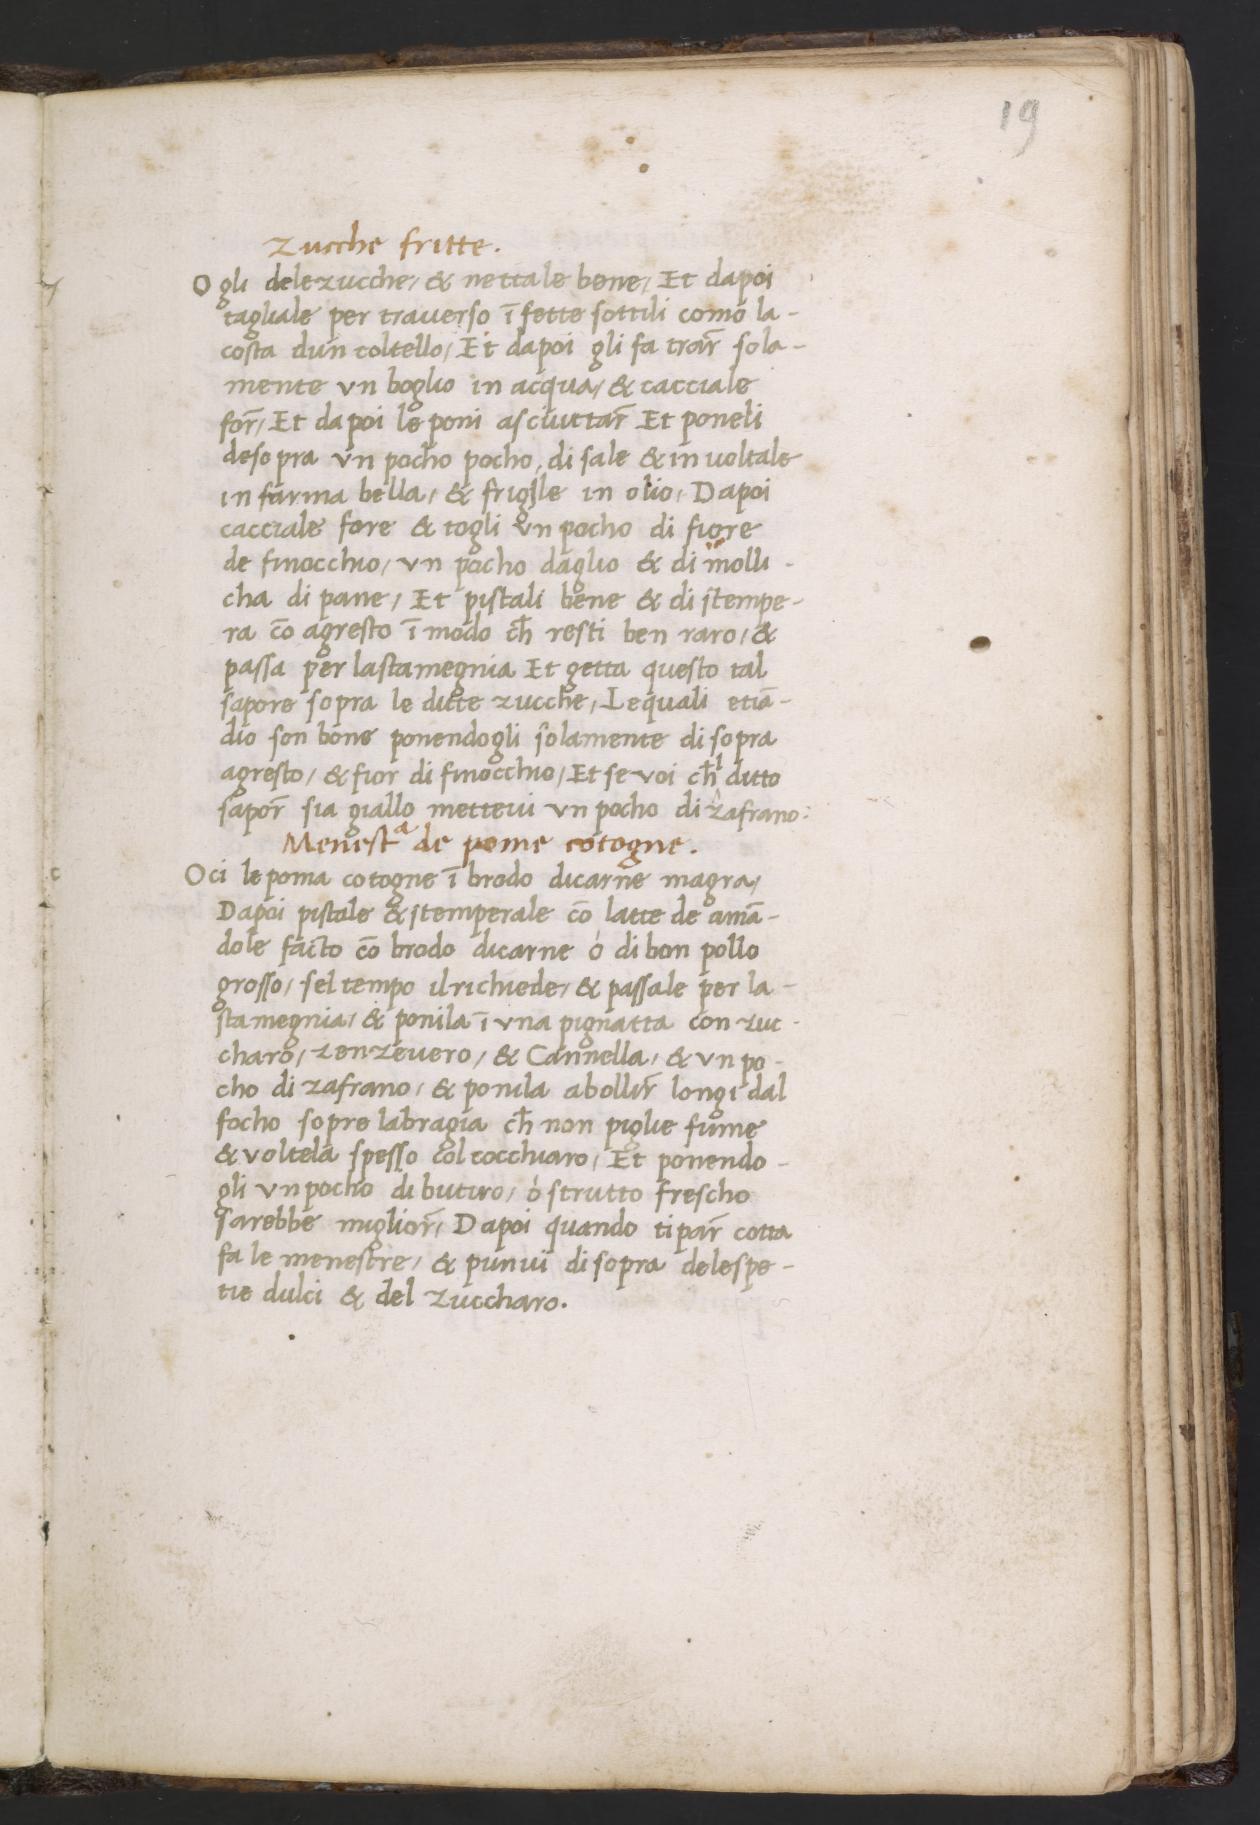 19
Zucche fritte.
Ogli delezucche, & nettale bene, Et dapoi
tagliale per trauerso ī fette sottili como la-
costa dun coltello, Et dapoi gli fa trar̄ sola-
mente vn boglio in acqua, & cacciale
for̄, Et dapoi le poni asciuttar̄ Et poneli
desopra vn pocho pocho di sale & in uoltale
in farina bella, & frigile in olio, Dapoi
cacciale fore & togli vn pocho di fiore
de finocchio, vn pocho daglio & di molli-
cha di pane, Et pistali bene & di stempe-
ra cō agresto ī modo ch̄ resti ben raro, &
passa per lastamegnia Et getta questo tal
sapore sopra le ditte zucche, Lequali etiā-
dio son bone ponendogli solamente di sopra
agresto, & fior di finocchio, Et se voi ch̄l ditto
sapor̄ sia giallo metteui vn pocho di zafrano:
Menestᵃ de pome cotogne.
Oci le poma cotogne ī brodo dicarne magra,
Dapoi pistale & stemperale cō latte de amā-
dole facto cō brodo dicarne ó di bon pollo
grosso, sel tempo il richiede, & passale per la-
stamegnia, & ponila ī vna pignatta con zuc-
charo, zenzeuero, & Cannella, & vn po-
cho di zafrano, & ponila abollir̄ longi dal
focho sopre labragia ch̄ non piglie fume
& voltela spesso col cocchiaro, Et ponendo-
gli vn pocho di butiro, ó strutto frescho
sarebbe miglior̄, Dapoi quando ti par̄ cotta
fa le menestre, & punui di sopra delespe-
tie dulci & del zuccharo.